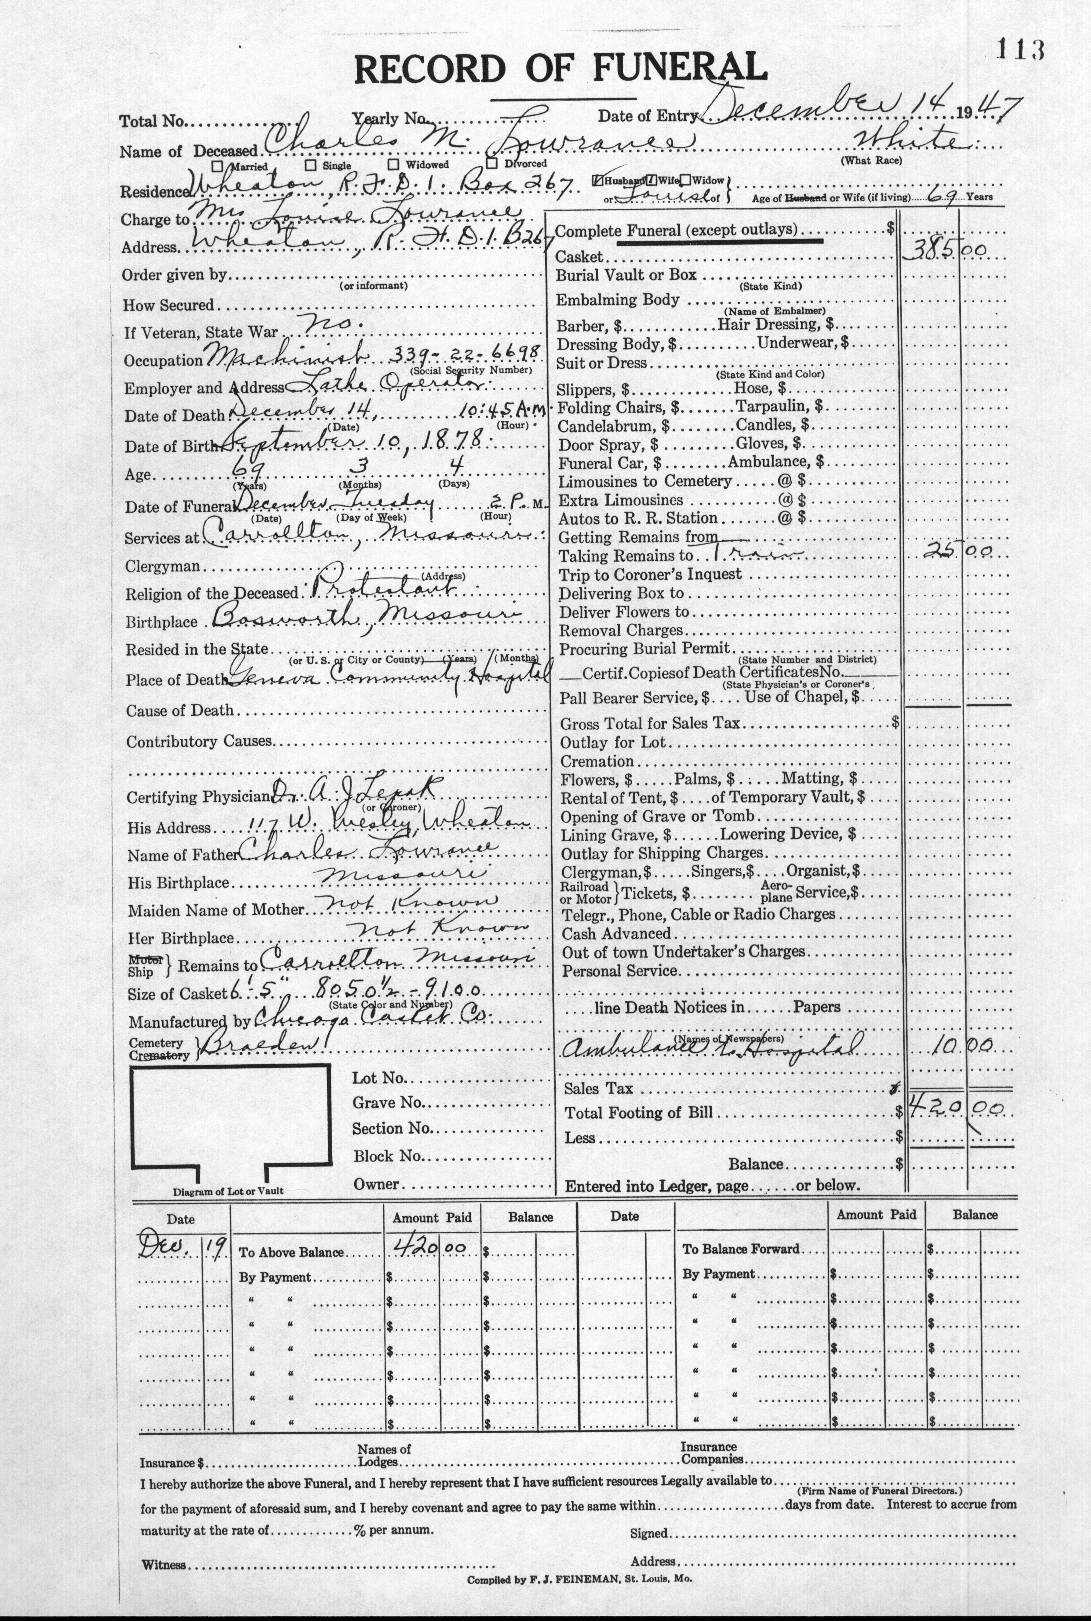 113
RECORD OF FUNERAL
Total No. Yearly No. Date of Entry December 14 1947
Name of Deceased Charles M. Lowrance White
(What Race)
Married Single Widowed Divorced
Residence Wheaton, R.F.D.1. Box 267 Husband Wife Widow or Louise of Age of Husband or Wife (if living) 69 Years
Charge to Mrs Louise Lowrance
Address Wheaton, R.F.D.1 B267
Order given by
(or informant)
How Secured
If Veteran, State War no.
Occupation Machinist 339-22-6698
(Social Security Number)
Employer and Address Lathe Operator
Date of Death December 14, 10:45 A.M.
(Date) (Hour)
Date of Birth September 10, 1878.
Age 69 3 4
(Years) (Months) (Days)
Date of Funeral December Tuesday 2 P. M.
(Date) (Day of Week) (Hour)
Services at Carrollton, Missouri
Clergyman
(Address)
Religion of the Deceased Protestant
Birthplace Bosworth, Missouri
Resided in the State
(or U. S. or City or County) (Years) (Months)
Place of Death Geneva Community Hospital
Cause of Death
Contributory Causes
Certifying Physician Dr. A. J. Lepak
(or Coroner)
His Address 117 W. Wesley, Wheaton
Name of Father Charles Lowrance
His Birthplace Missouri
Maiden Name of Mother not Known
Her Birthplace not Known
Motor Ship } Remains to Carrollton Missouri
Size of Casket 6'-5" 8050½-9100
(State Color and Number)
Manufactured by Chicago Casket Co.
Cemetery Crematory }
Lot No.
Grave No.
Section No.
Block No.
Owner
Diagram of Lot or Vault
Complete Funeral (except outlays) $
Casket 385 00
Burial Vault or Box
(State Kind)
Embalming Body
(Name of Embalmer)
Barber, $ Hair Dressing, $
Dressing Body, $ Underwear, $
Suit or Dress
(State Kind and Color)
Slippers, $ Hose, $
Folding Chairs, $ Tarpaulin, $
Candelabrum, $ Candles, $
Door Spray, $ Gloves, $
Funeral Car, $ Ambulance, $
Limousines to Cemetery @ $
Extra Limousines @ $
Autos to R. R. Station @ $
Getting Remains from
Taking Remains to Train 25 00
Trip to Coroner's Inquest
Delivering Box to
Deliver Flowers to
Removal Charges
Procuring Burial Permit
(State Number and District)
Certif. Copies of Death Certificates No.
(State Physician's or Coroner's
Pall Bearer Service, $ Use of Chapel, $
Gross Total for Sales Tax $
Outlay for Lot
Cremation
Flowers, $ Palms, $ Matting, $
Rental of Tent, $ of Temporary Vault, $
Opening of Grave or Tomb
Lining Grave, $ Lowering Device, $
Outlay for Shipping Charges
Clergyman, $ Singers, $ Organist, $
Railroad or Motor } Tickets, $ Aeroplane Service, $
Telegr., Phone, Cable or Radio Charges
Cash Advanced
Out of town Undertaker's Charges
Personal Service
line Death Notices in Papers
(Names of Newspapers)
Ambulance to Hospital 10 00
Sales Tax $
Total Footing of Bill $ 420 00
Less $
Balance $
Entered into Ledger, page or below.
Date Amount Paid Balance Date Amount Paid Balance
Dec. 19 To Above Balance 420 00 $ To Balance Forward $
By Payment $ $ By Payment $ $
" " $ $ " " $ $
" " $ $ " " $ $
" " $ $ " " $ $
" " $ $ " " $ $
" " $ $ " " $ $
" " $ $ " " $ $
Insurance $ Names of Lodges Insurance Companies
I hereby authorize the above Funeral, and I hereby represent that I have sufficient resources Legally available to
(Firm Name of Funeral Directors.)
for the payment of aforesaid sum, and I hereby covenant and agree to pay the same within days from date. Interest to accrue from
maturity at the rate of % per annum. Signed
Witness Address
Compiled by F. J. FEINEMAN, St. Louis, Mo.